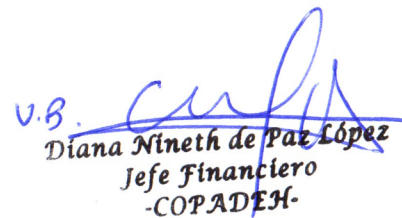 V.B.
Diana Nineth de Paz López
Jefe Financiero
-COPADEH-